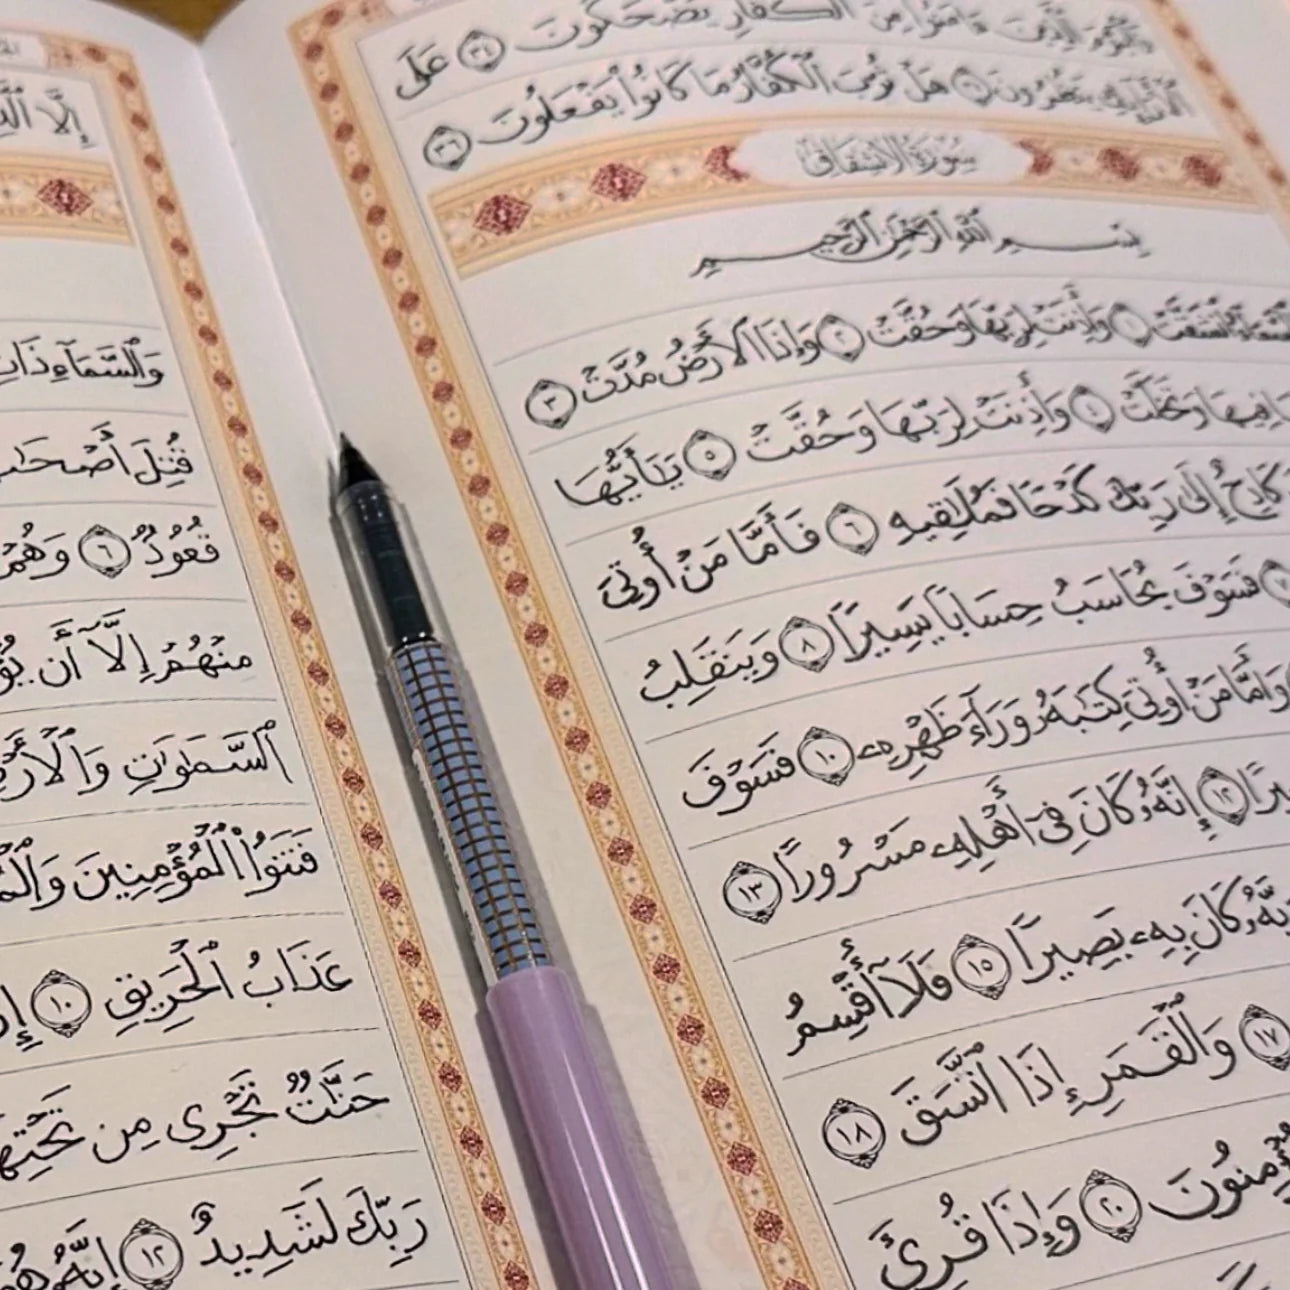 ٱلَّذِينَ ءَامَنُوا۟ مِنَ ٱلْكُفَّارِ يَضْحَكُونَ ٣٤ عَلَى
ٱلْأَرَآئِكِ يَنظُرُونَ ٣٥ هَلْ ثُوِّبَ ٱلْكُفَّارُ مَا كَانُوا۟ يَفْعَلُونَ ٣٦
سُورَةُ الانشِقَاقِ
بِسْمِ ٱللَّهِ ٱلرَّحْمَٰنِ ٱلرَّحِيمِ
ٱلسَّمَآءُ ٱنشَقَّتْ ١ وَأَذِنَتْ لِرَبِّهَا وَحُقَّتْ ٢ وَإِذَا ٱلْأَرْضُ مُدَّتْ ٣
مَا فِيهَا وَتَخَلَّتْ ٤ وَأَذِنَتْ لِرَبِّهَا وَحُقَّتْ ٥ يَٰٓأَيُّهَا
كَادِحٌ إِلَىٰ رَبِّكَ كَدْحًا فَمُلَٰقِيهِ ٦ فَأَمَّا مَنْ أُوتِىَ
٧ فَسَوْفَ يُحَاسَبُ حِسَابًا يَسِيرًا ٨ وَيَنقَلِبُ
وَأَمَّا مَنْ أُوتِىَ كِتَٰبَهُۥ وَرَآءَ ظَهْرِهِۦ ١٠ فَسَوْفَ
١٢ إِنَّهُۥ كَانَ فِىٓ أَهْلِهِۦ مَسْرُورًا ١٣
رَبَّهُۥ كَانَ بِهِۦ بَصِيرًا ١٥ فَلَآ أُقْسِمُ
١٧ وَٱلْقَمَرِ إِذَا ٱتَّسَقَ ١٨
يُؤْمِنُونَ ٢٠ وَإِذَا قُرِئَ
إِلَّا ٱلَّ
وَٱلسَّمَآءِ ذَاتِ
قُتِلَ أَصْحَٰبُ
قُعُودٌ ٦ وَهُمْ
مِنْهُمْ إِلَّآ أَن يُؤْ
ٱلسَّمَٰوَٰتِ وَٱلْأَرْضِ
فَتَنُوا۟ ٱلْمُؤْمِنِينَ وَٱلْمُ
عَذَابُ ٱلْحَرِيقِ ١٠ إِنَّ
جَنَّٰتٌ تَجْرِى مِن تَحْتِهَا
رَبِّكَ لَشَدِيدٌ ١٢ إِنَّهُۥ هُوَ